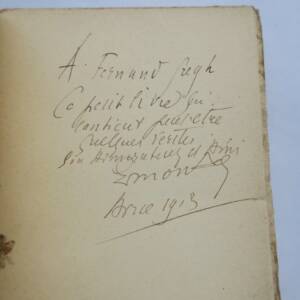 A Fernand Gregh
Ce petit livre qui
contient peut-être
quelques vérités
Son admirateur et ami
1913